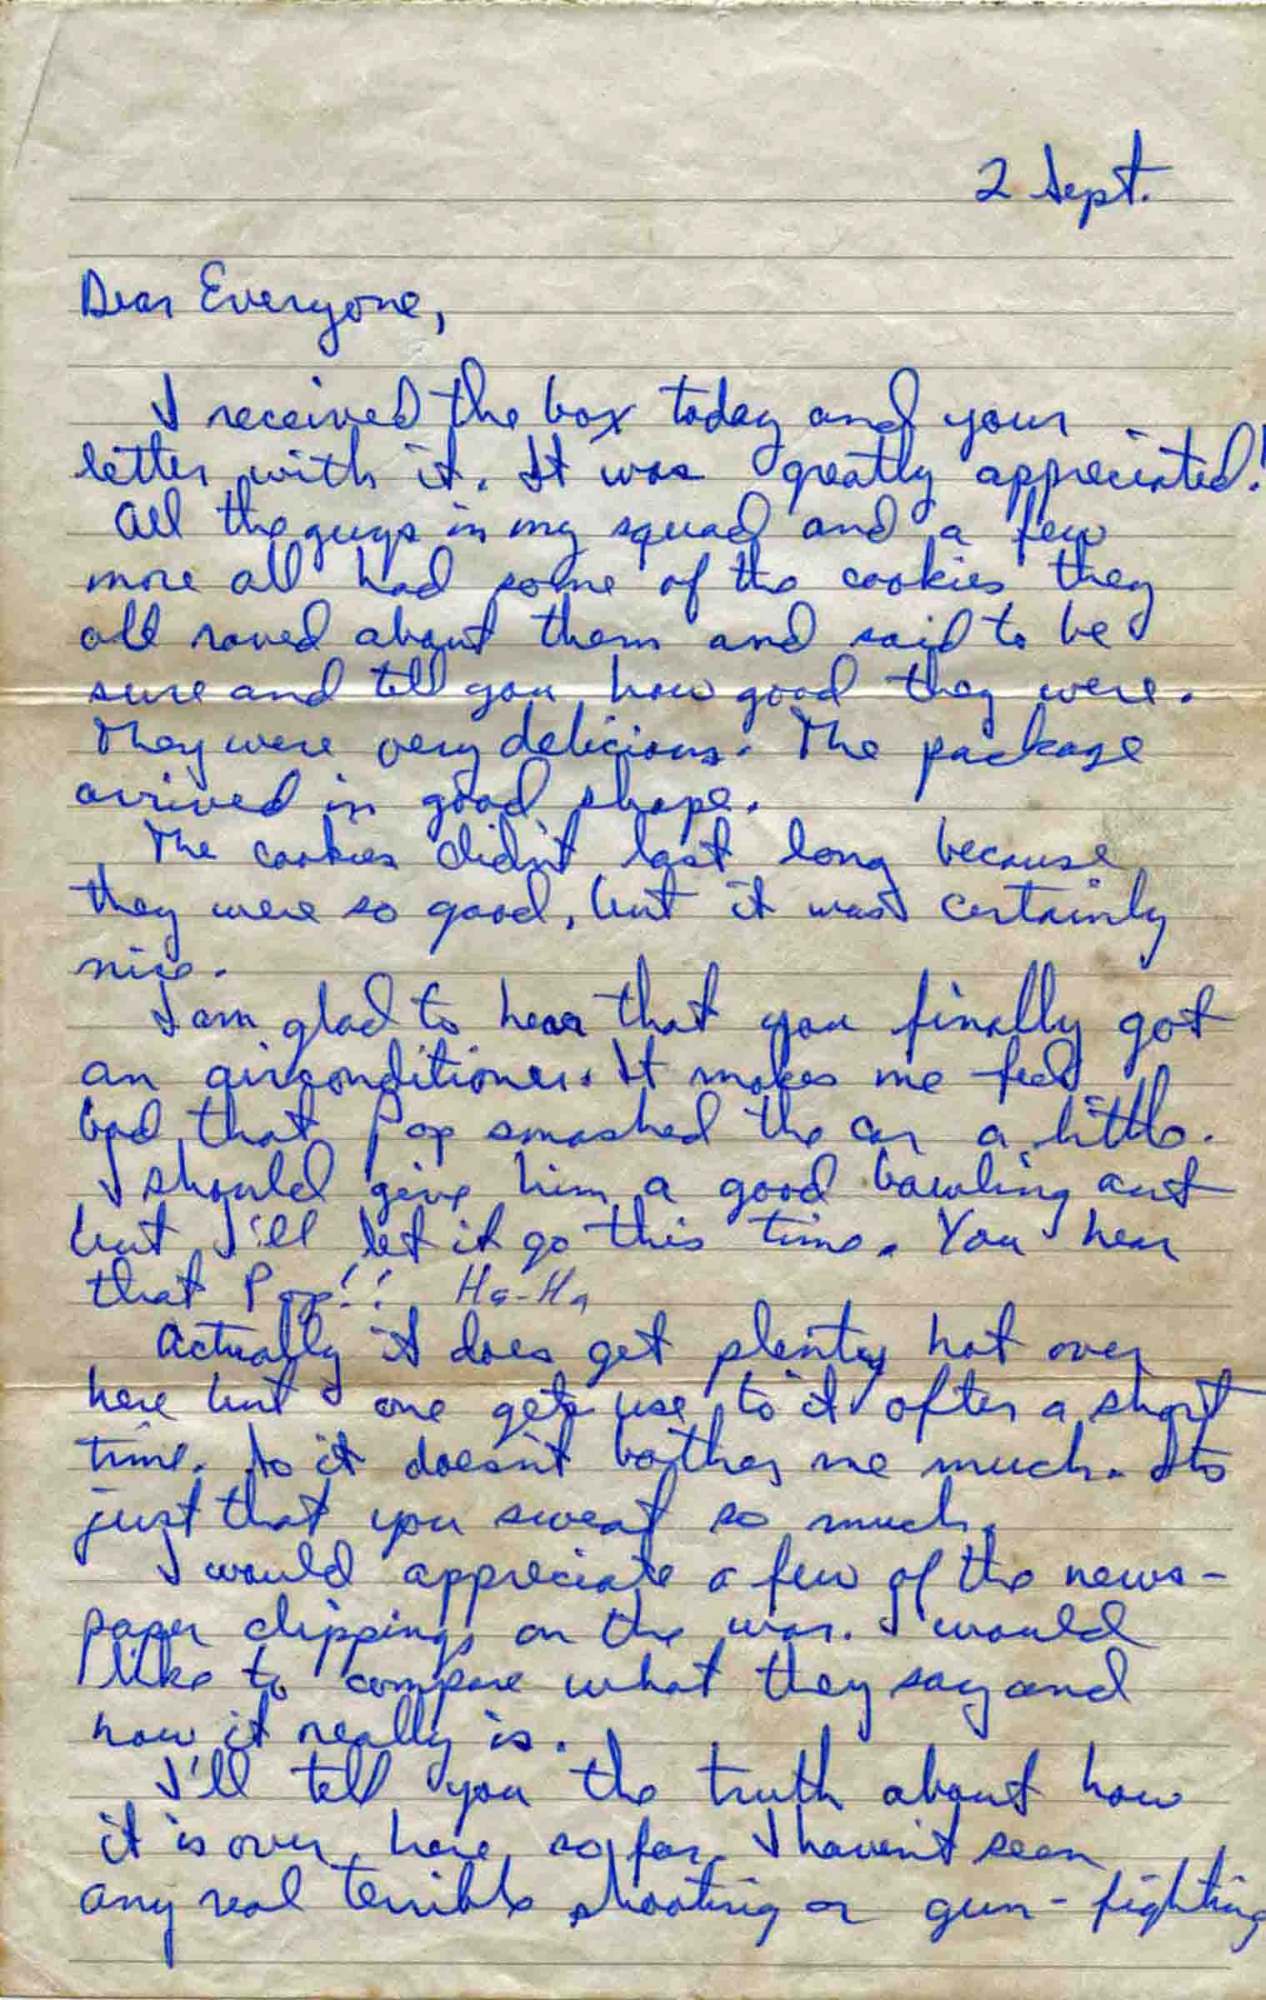 2 Sept.
Dear Everyone,
I received the box today and your
letter with it. It was greatly appreciated!
All the guys in my squad and a few
more all had some of the cookies they
all raved about them and said to be
sure and tell you how good they were.
They were very delicious. The package
arrived in good shape.
The cookies didn't last long because
they were so good, but it was certainly
nice.
I am glad to hear that you finally got
an airconditioner. It makes me feel
bad that Pop smashed the car a little.
I should give him a good bawling out
but I'll let it go this time. You hear
that Pop!! Ha-Ha
Actually it does get plenty hot over
here but one gets use to it after a short
time. So it doesn't bother me much. Its
just that you sweat so much.
I would appreciate a few of the news-
paper clippings on the war. I would
like to compare what they say and
how it really is.
I'll tell you the truth about how
it is over here so far. I haven't seen
any real terrible shooting or gun-fighting